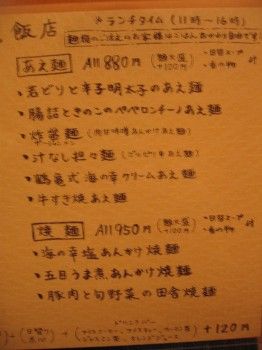 飯店
※ランチタイム(11時〜16時)
麺類のご注文のお客様はごはんおかわり自由です
あえ麺 All 880円 (麺大盛 +120円) ・日替スープ ・香の物 付
・若どりと辛子明太子のあえ麺
・腸詰ときのこのペペロンチーノあえ麺
・炸醤麺 (肉甘味噌あんかけあえ麺)
・汁なし担々麺 (ピリ辛あえ麺)
・鶴亀式海の幸クリームあえ麺
・牛すき焼あえ麺
焼麺 All 950円 (麺大盛 +120円) ・日替スープ ・香の物 付
・海の幸塩あんかけ焼麺
・五目うま煮あんかけ焼麺
・豚肉と旬野菜の田舎焼麺
ドリンクバー
+120円